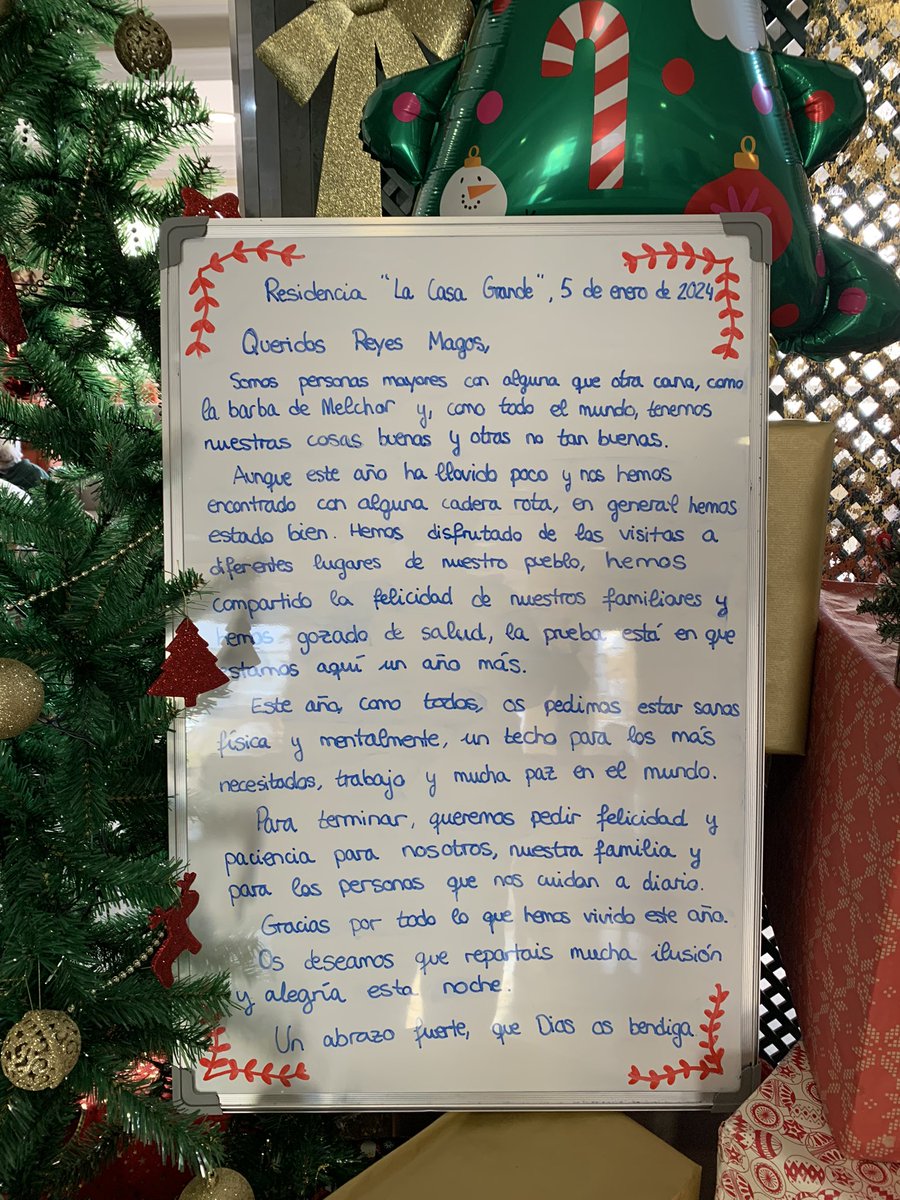 Residencia "La Casa Grande", 5 de enero de 2024
Queridos Reyes Magos,
Somos personas mayores con alguna que otra cana, como
la barba de Melchor y, como todo el mundo, tenemos
nuestras cosas buenas y otras no tan buenas.
Aunque este año ha llovido poco y nos hemos
encontrado con alguna cadera rota, en general hemos
estado bien. Hemos disfrutado de las visitas a
diferentes lugares de nuestro pueblo, hemos
compartido la felicidad de nuestros familiares y
hemos gozado de salud, la prueba está en que
estamos aquí un año más.
Este año, como todos, os pedimos estar sanos
física y mentalmente, un techo para los más
necesitados, trabajo y mucha paz en el mundo.
Para terminar, queremos pedir felicidad y
paciencia para nosotros, nuestra familia y
para las personas que nos cuidan a diario.
Gracias por todo lo que hemos vivido este año.
Os deseamos que repartais mucha ilusión
y alegría esta noche.
Un abrazo fuerte, que Dios os bendiga.